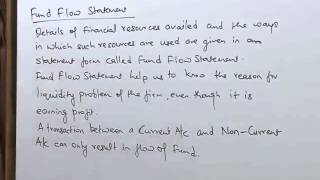 Fund Flow Statement
Details of financial resources availed and the ways
in which such resources are used are given in a
statement form called Fund Flow Statement.
Fund Flow Statement help us to know the reason for
liquidity problem of the firm, even though it is
earning profit.
A transaction between a Current A/c and Non-Current
A/c can only result in flow of Fund.